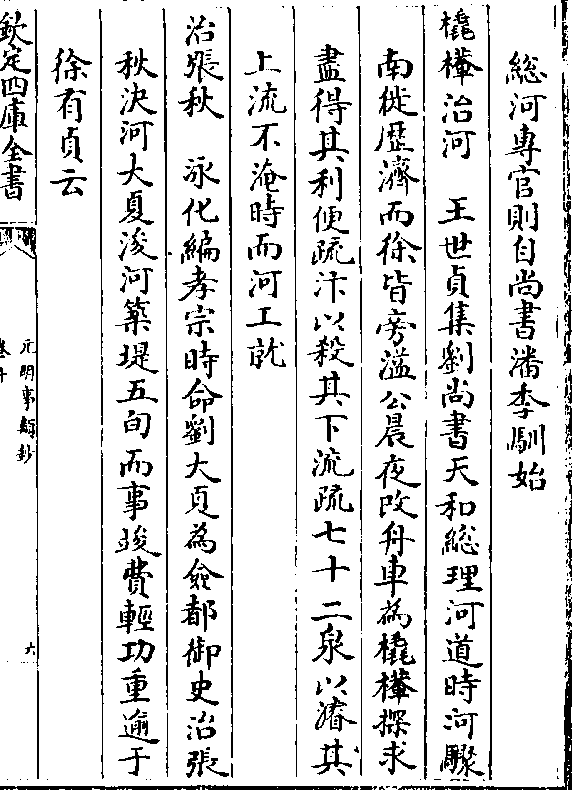 總河專官則自尚書潘季馴始
橇檋治河　王世貞集劉尚書天和總理河道時河驟
南徙歴濟而徐皆旁溢公晨夜改舟車為橇檋探求
盡得其利便疏汴以殺其下流疏七十二泉以濬其
上流不淹時而河工就
治張秋　泳化編孝宗時命劉大夏為僉都御史治張
秋決河大夏浚河築堤五旬而事竣費輕功重逾于
徐有貞云
欽定四庫全書
元明事類鈔
六